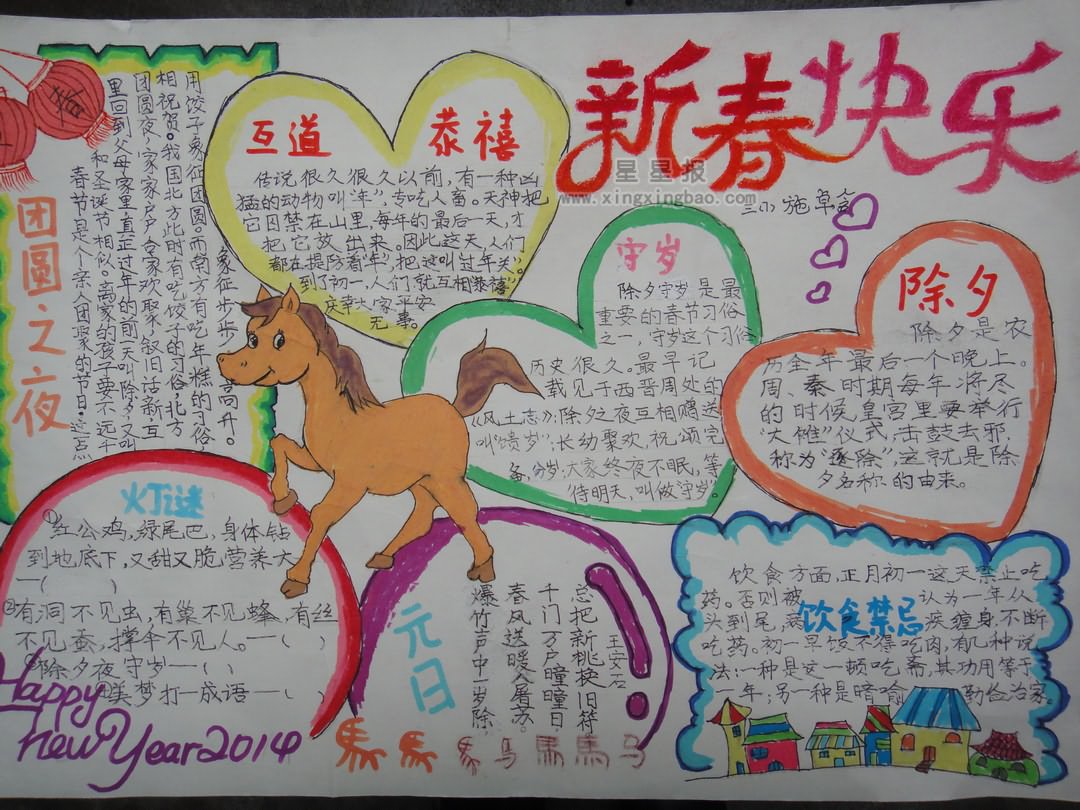 新春快乐
星星报
www.xingxingbao.com
三小 施卓
春
团圆之夜
春节是个亲人团聚的节日。这点
和圣诞节相似。离家的孩子要不远千
里回到父母家里真正过年的前一天叫除夕,又叫
团圆夜,家家户户合家欢聚叙旧话新互
相祝贺。我国北方此时有吃饺子的习俗,北方
用饺子象征团圆。而南方有吃年糕的习俗,
象征步步高升。
互道恭禧
传说很久很久以前,有一种凶
猛的动物叫“年”,专吃人畜。天神把
它囚禁在山里,每年的最后一天,才
把它放出来。因此这天,人们
都在提防着“年”,把这叫“过年关”。
到了初一,人们就互相恭禧,
庆幸大家平安
无事。
守岁
除夕守岁是最
重要的春节习俗
之一,守岁这个习俗
历史很久。最早记
载见于西晋周处的
《风土志》:除夕之夜互相赠送
叫“馈岁”;长幼聚欢,祝颂完
备,分岁;大家终夜不眠,等
待明天,叫做“守岁”。
除夕
除夕是农
历全年最后一个晚上。
周、秦时期每年将尽
的时候皇宫里要举行
“大傩”仪式,击鼓去邪,
称为“逐除”,这就是除
夕名称的由来。
灯谜
①红公鸡,绿尾巴,身体钻
到地底下,又甜又脆营养大
—( )
②有洞不见虫,有巢不见蜂,有丝
不见蚕,撑伞不见人。—( )
③除夕夜守岁—( )
④美梦打一成语—( )
Happy
New Year 2014
元日
王安石
爆竹声中一岁除
春风送暖入屠苏。
千门万户曈曈日,
总把新桃换旧符
饮食禁忌
饮食方面,正月初一这天禁止吃
药。否则被认为一年从
头到尾,疾缠身,不断
吃药。初一早饭不得吃肉,有几种说
法:一种是这一顿吃斋,其功用等于
一年;另一种是暗喻勤俭治家。